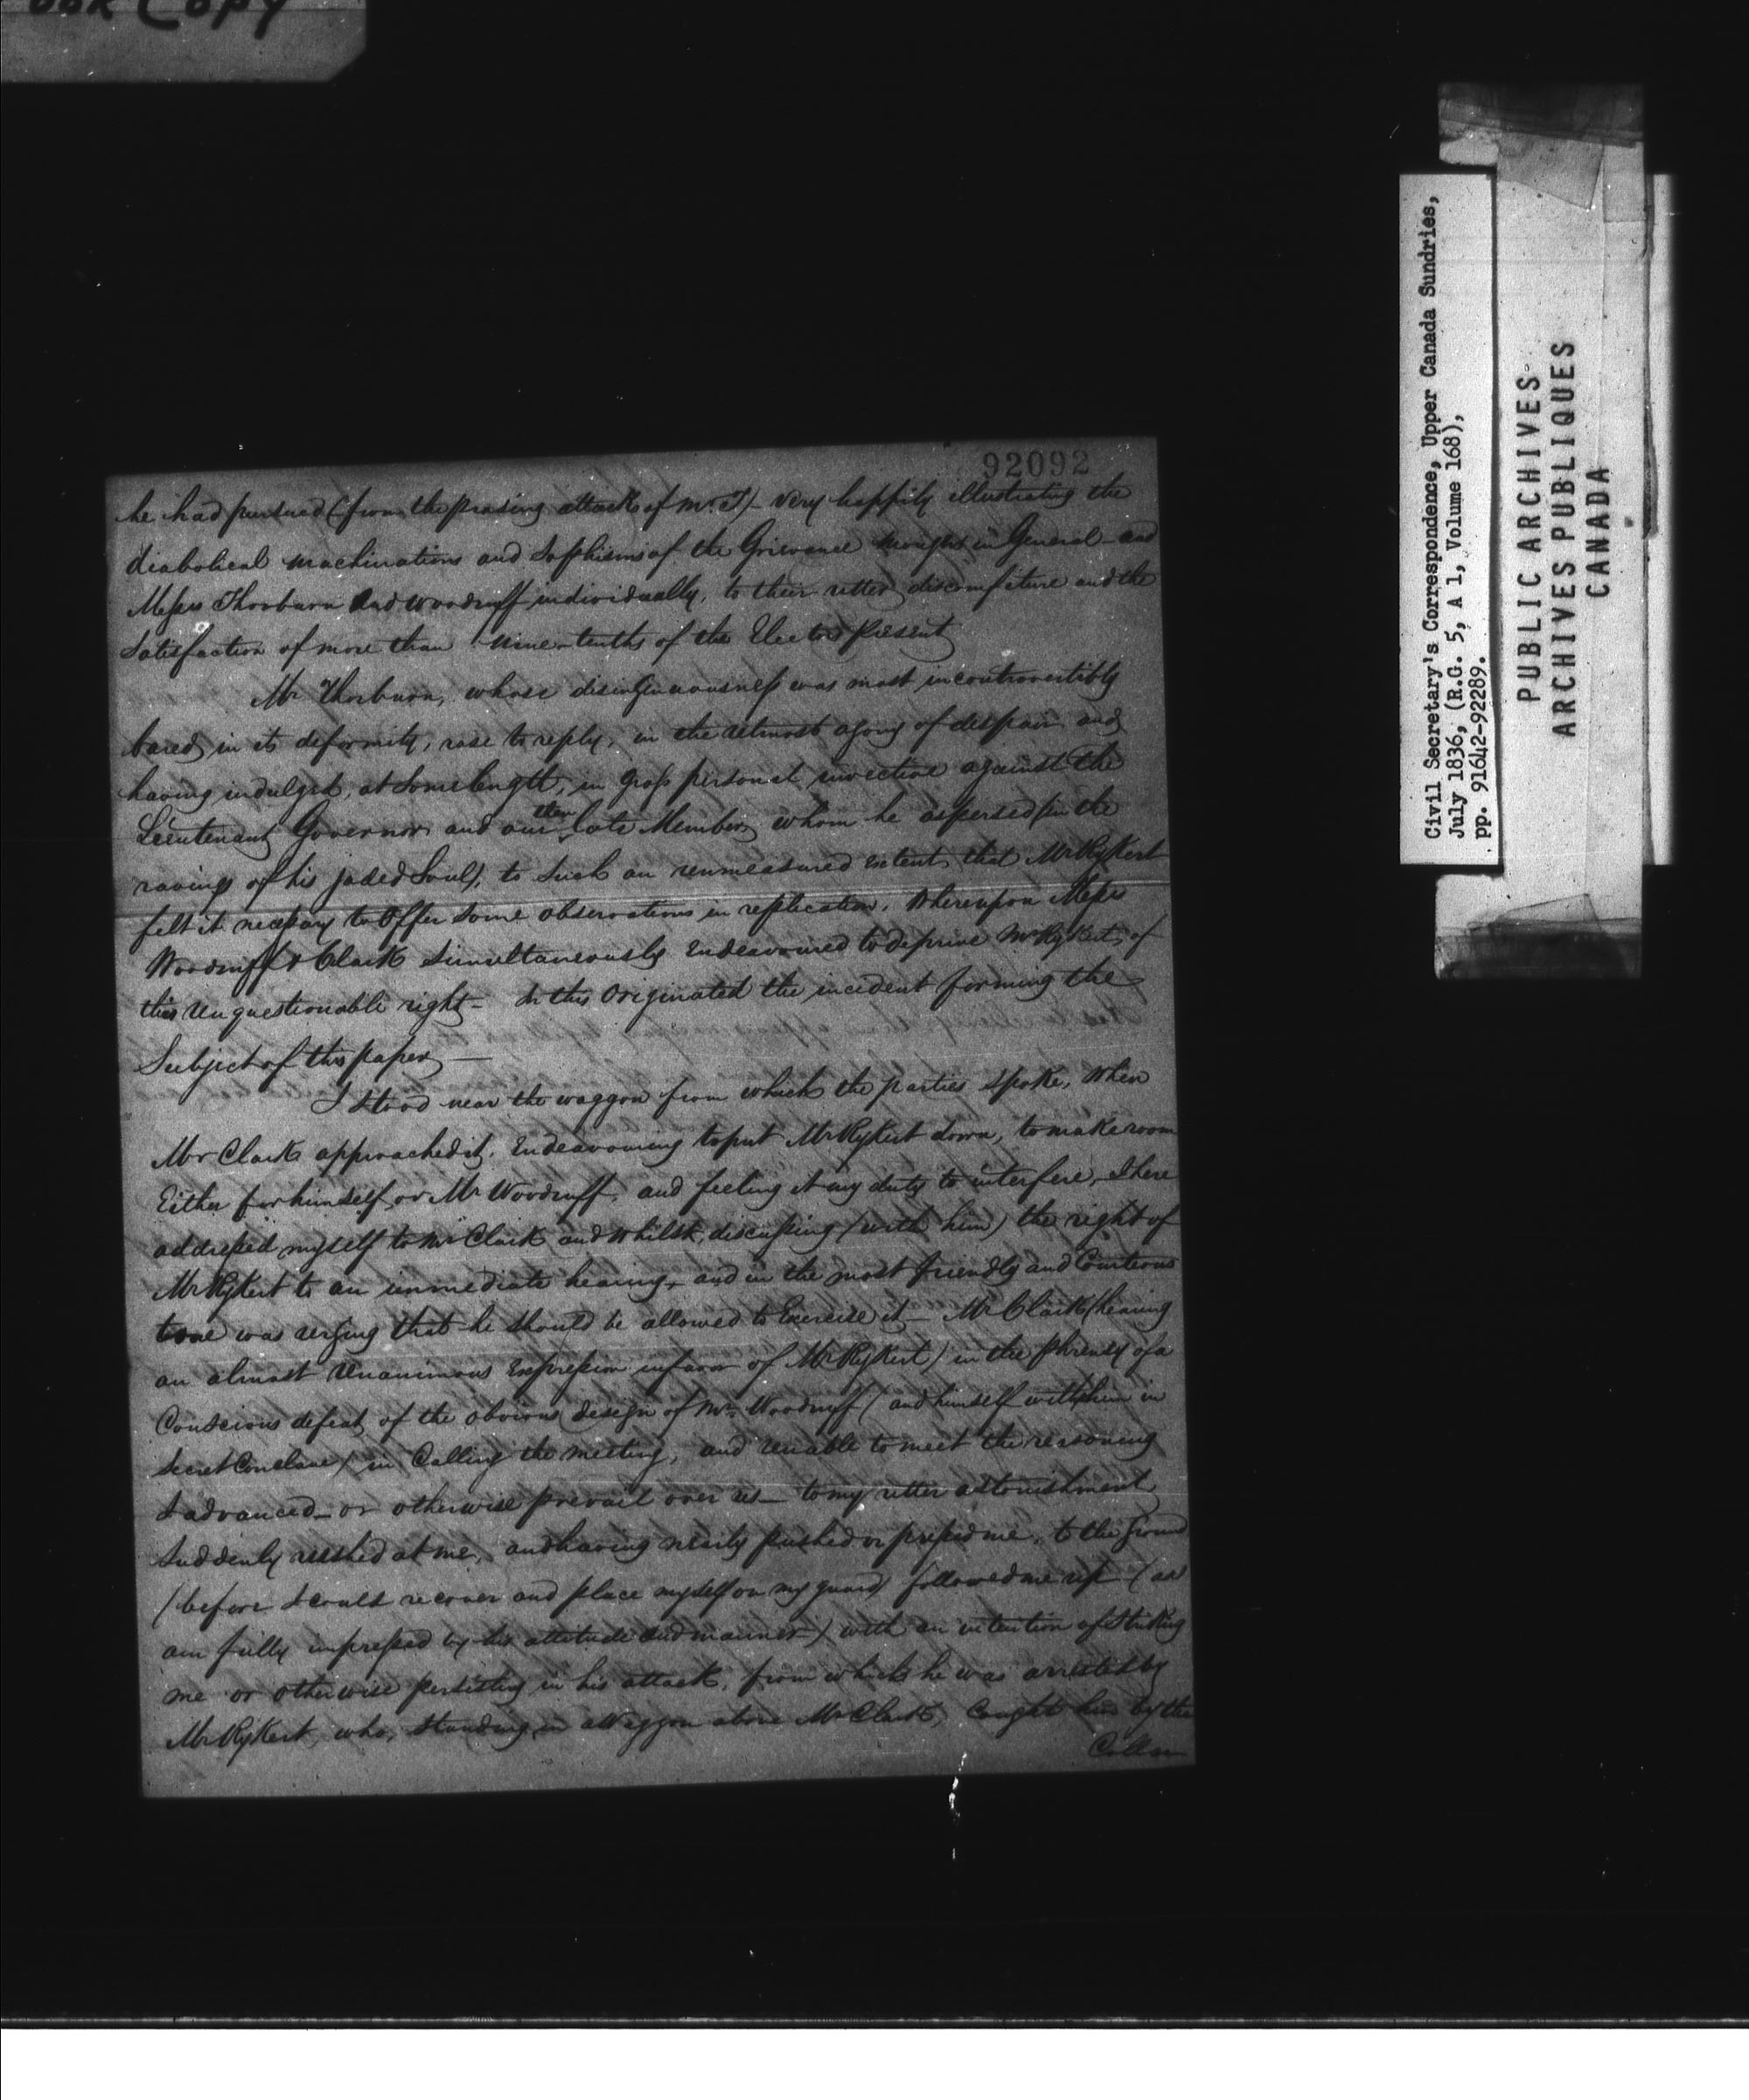 ook Copy
92092
he had pursued (from the prosing attack of Mr. T) - very happily illustrating the
diabolical machinations and Sophisms of the Grievance mongers in General - and
Messrs Thorburn and Woodruff individually, to their utter discomfiture and the
Satisfaction of more than nine-tenths of the Electors present
Mr Thorburn, whose disingenuousness was most incontrovertibly
bared in its deformity, rose to reply, in the utmost agony of despair and
having indulged, at some length, in gross personal invective against the
Lieutenant Governor and our then late Member, whom he aspersed (in the
ravings of his jaded Soul), to such an unmeasured extent, that Mr Rykert
felt it necessary to Offer some observations in replication. Whereupon Messrs
Woodruff & Clark Simultaneously Endeavoured to deprive Mr Rykert, of
this Unquestionable right - In this Originated the incident forming the
Subject of this paper —
I stood near the waggon from which the parties spoke, When
Mr Clark approached it, Endeavouring to put Mr Rykert down, to make room
Either for himself, or Mr Woodruff, and feeling it my duty to interfere, I here
addressed myself to Mr Clark and Whilst, discussing (with him) the right of
Mr Rykert to an immediate hearing, and in the most friendly and Courteous
tone was urging that he should be allowed to Exercise it - Mr Clark (hearing
an almost Unanimous Expression in favor of Mr Rykert) in the phrensy of a
Conscious defeat, of the obvious design of Mr Woodruff (and himself with him in
Secret Conclave) in Calling the meeting, and unable to meet the reasoning
I advanced - or otherwise prevail over us - to my utter astonishment
Suddenly rushed at me, and having nearly pushed or pressed me, to the ground
(before I could recover and place myself on my guard) followed me up (as
am fully impressed by his attitude and manner) with an intention of Striking
me or otherwise persisting in his attack, from which he was arrested by
Mr Rykert, who, standing in a Waggon above Mr Clark, Caught him by the
Collar
Civil Secretary's Correspondence, Upper Canada Sundries,
July 1836, (R.G. 5, A 1, Volume 168),
pp. 91642-92289.
PUBLIC ARCHIVES
ARCHIVES PUBLIQUES
CANADA